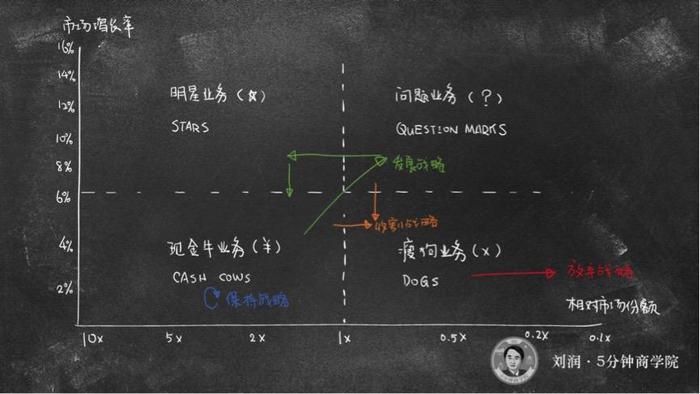 市场增长率
16%
14%
12%
10%
8%
6%
4%
2%
明星业务（☆）
STARS
问题业务（?）
QUESTION MARKS
发展战略
收割战略
现金牛业务（¥）
CASH COWS
保持战略
瘦狗业务（×）
DOGS
放弃战略
相对市场份额
10x 5x 2x 1x 0.5x 0.2x 0.1x
刘润·5分钟商学院